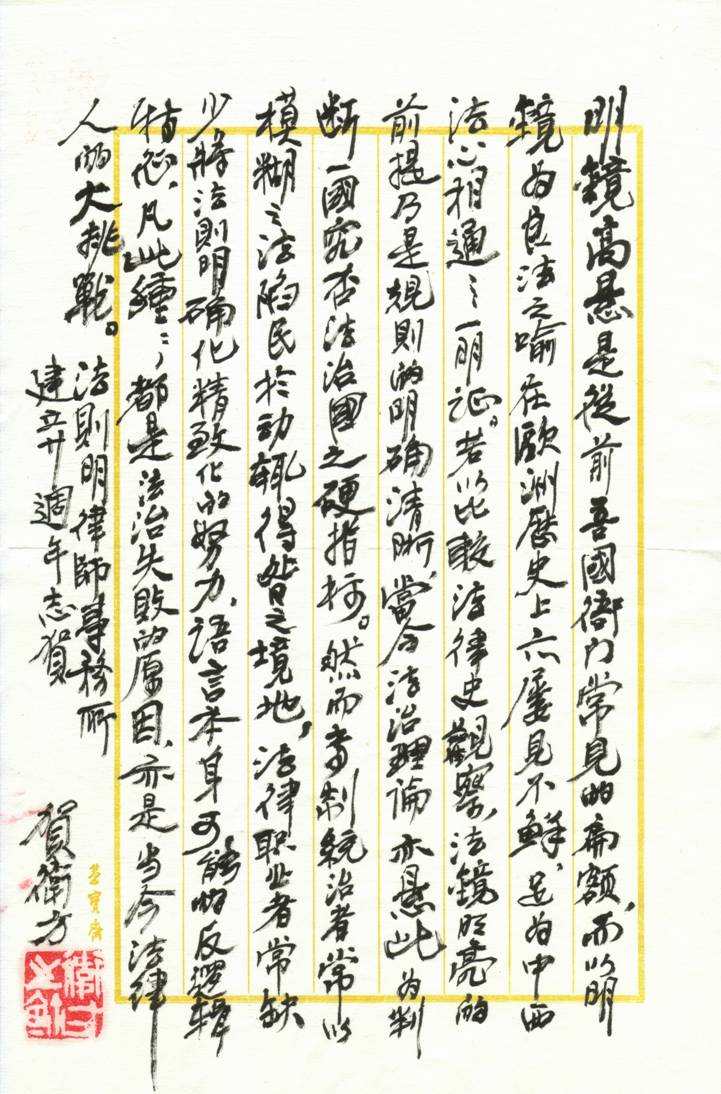 明鏡高懸是從前吾國衙门常見的扁额,而以明
鏡为良法之喻在歐洲歷史上亦屡見不鲜,足为中西
法心相通之一明证。若以比較法律史觀察,法镜明亮的
前提乃是規則的明确清晰,當今法治理論亦悬此为判
断一國究否法治國之硬指标。然而专制統治者常以
模糊之法陷民於动輒得咎之境地,法律职业者常缺
少將法則明确化精致化的努力,語言本身可能的反逻輯
特性,凡此種種,都是法治失败的原因,亦是当今法律
人的大挑戰。
法則明律師事務所
建立廿週年志賀
賀衛方